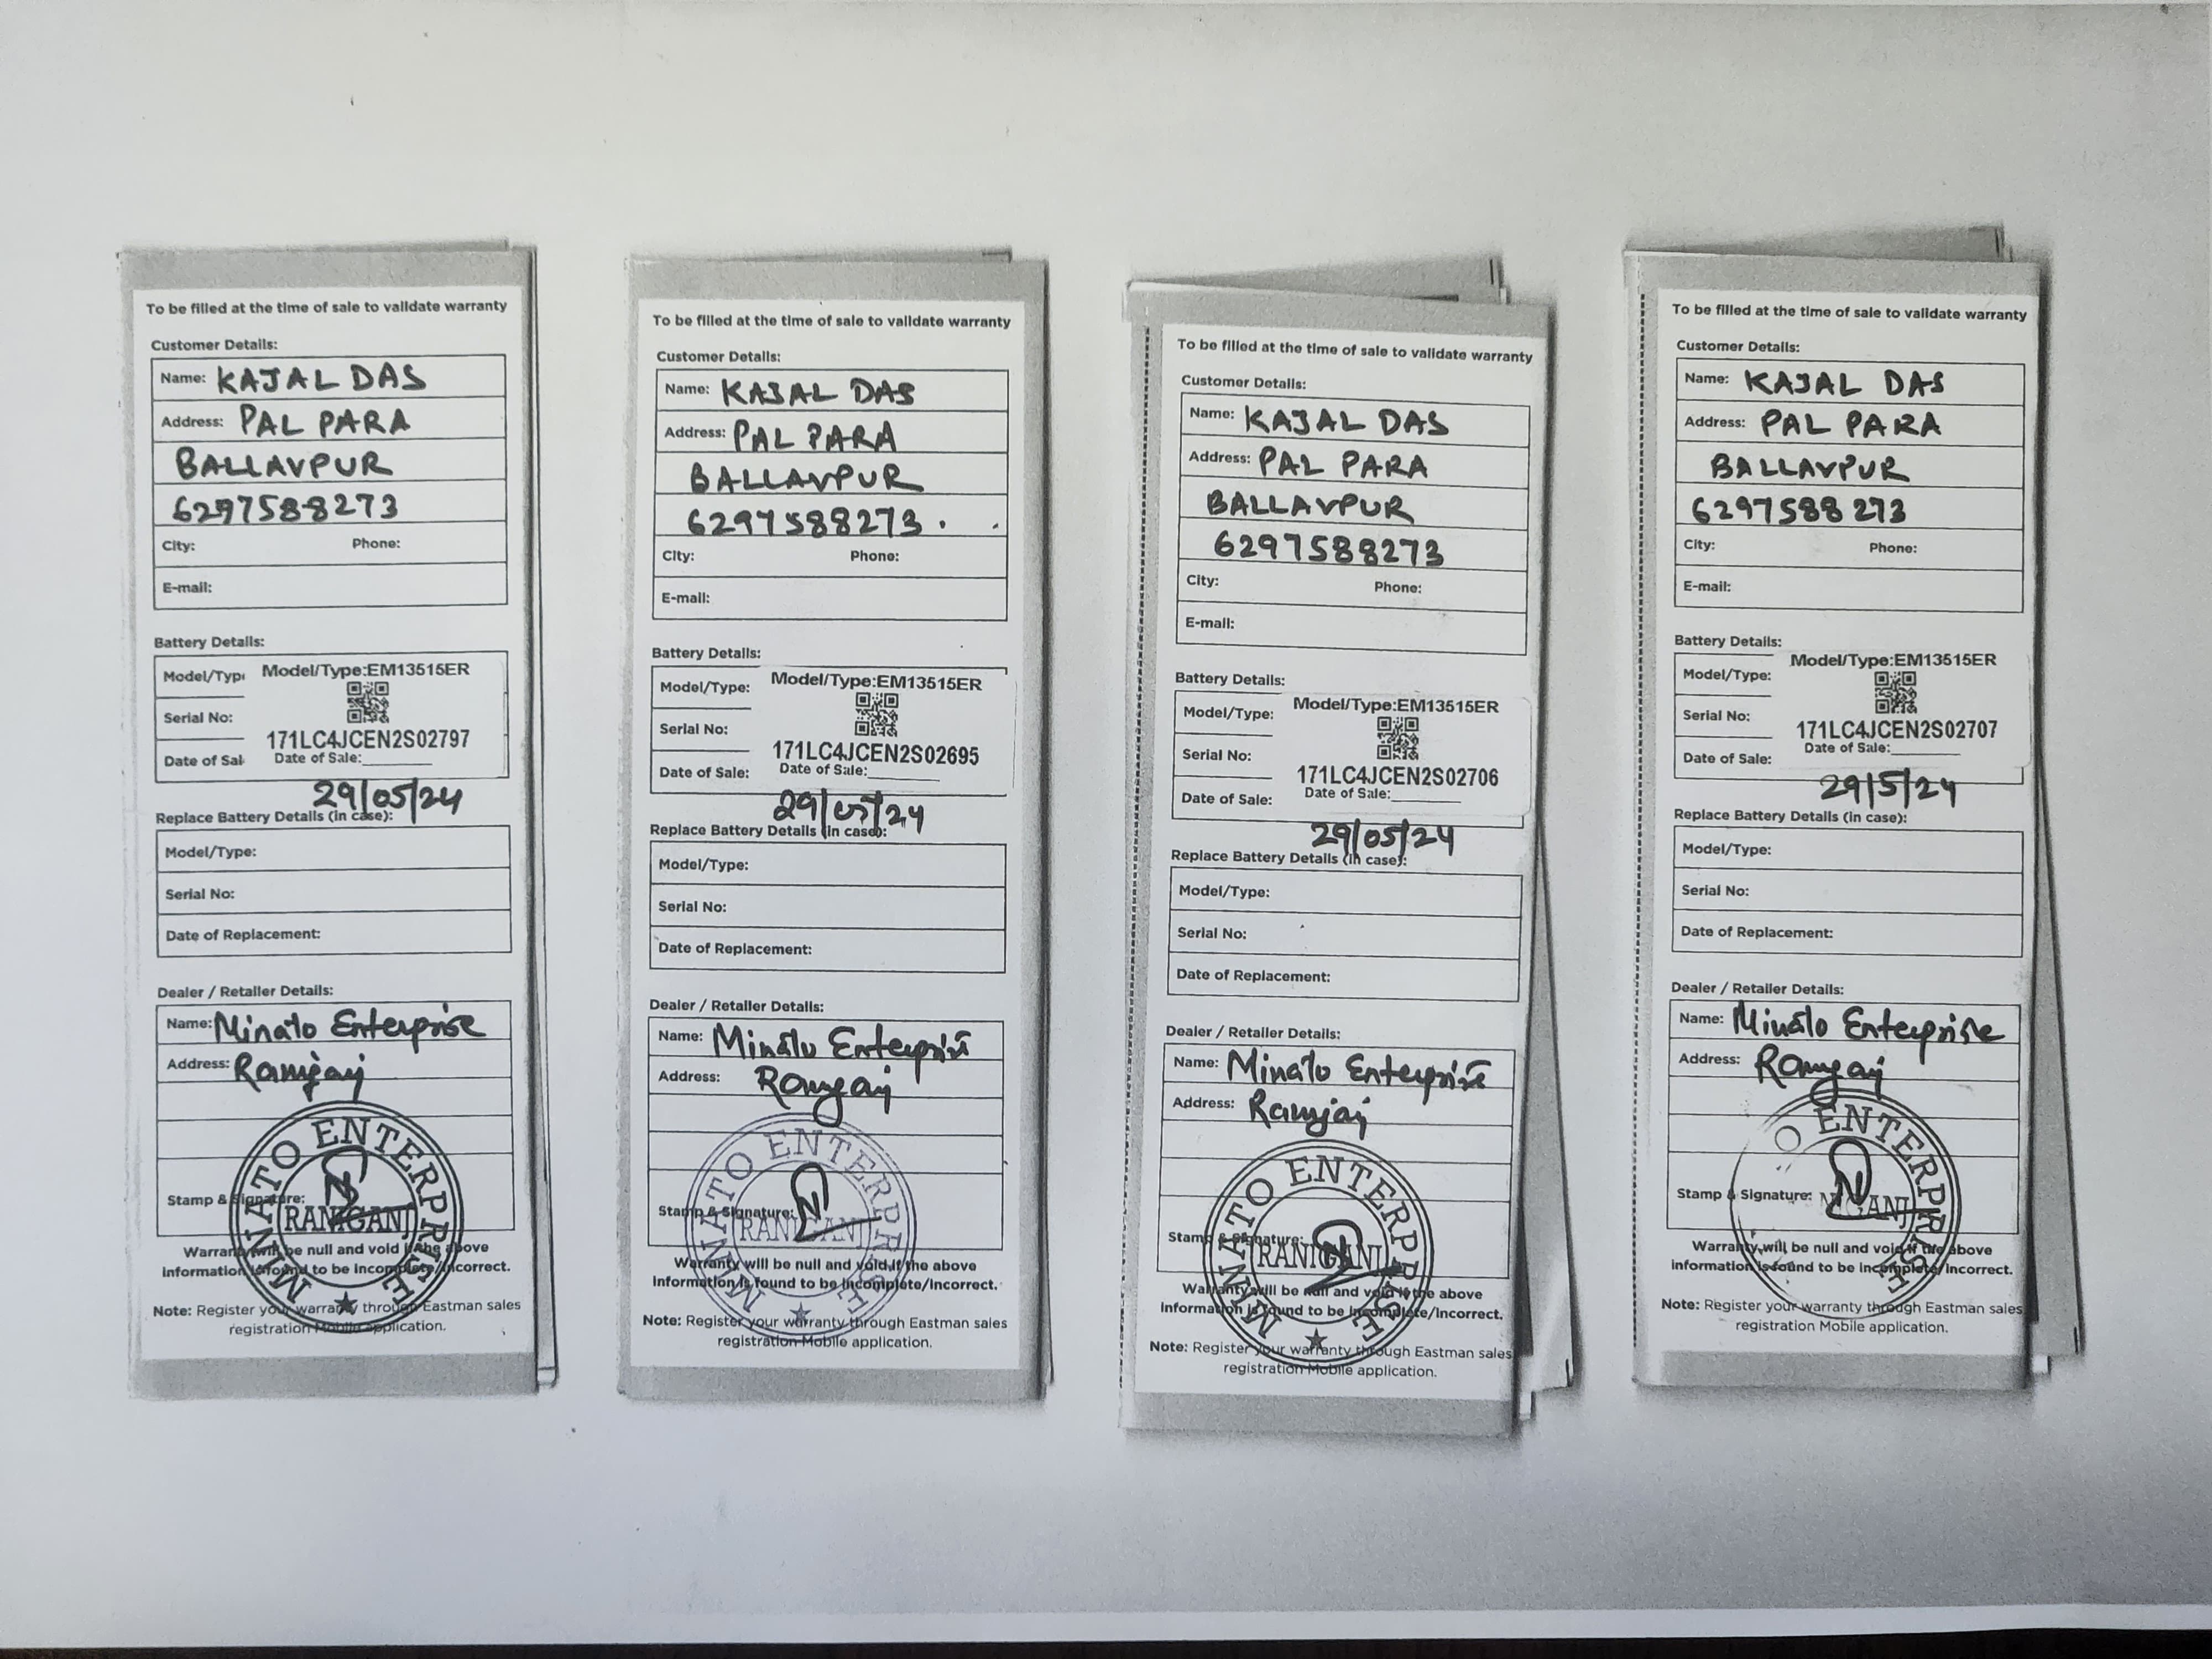 To be filled at the time of sale to validate warranty
Customer Details:
Name: KAJAL DAS
Address: PAL PARA
BALLAVPUR
6297588273
City: Phone:
E-mail:
Battery Details:
Model/Typ Model/Type:EM13515ER
Serial No:
171LC4JCEN2S02797
Date of Sal Date of Sale:
29/05/24
Replace Battery Details (in case):
Model/Type:
Serial No:
Date of Replacement:
Dealer / Retailer Details:
Name: Minato Enterprise
Address: Raniganj
MINATO ENTERPRISE
Stamp & Signature:
RANIGANJ
Warranty will be null and void if the above
information is found to be incomplete/incorrect.
Note: Register your warranty through Eastman sales
registration Mobile application.
To be filled at the time of sale to validate warranty
Customer Details:
Name: KAJAL DAS
Address: PAL PARA
BALLAVPUR
6297588273.
City: Phone:
E-mail:
Battery Details:
Model/Type: Model/Type:EM13515ER
Serial No:
171LC4JCEN2S02695
Date of Sale: Date of Sale:
29/05/24
Replace Battery Details (in case):
Model/Type:
Serial No:
Date of Replacement:
Dealer / Retailer Details:
Name: Minato Enterprise
Address: Raniganj
MINATO ENTERPRISE
Stamp & Signature:
RANIGANJ
Warranty will be null and void if the above
information is found to be incomplete/incorrect.
Note: Register your warranty through Eastman sales
registration Mobile application.
To be filled at the time of sale to validate warranty
Customer Details:
Name: KAJAL DAS
Address: PAL PARA
BALLAVPUR
6297588273
City: Phone:
E-mail:
Battery Details:
Model/Type: Model/Type:EM13515ER
Serial No:
171LC4JCEN2S02706
Date of Sale: Date of Sale:
29/05/24
Replace Battery Details (in case):
Model/Type:
Serial No:
Date of Replacement:
Dealer / Retailer Details:
Name: Minato Enterprise
Address: Raniganj
MINATO ENTERPRISE
Stamp & Signature:
RANIGANJ
Warranty will be null and void if the above
information is found to be incomplete/incorrect.
Note: Register your warranty through Eastman sales
registration Mobile application.
To be filled at the time of sale to validate warranty
Customer Details:
Name: KAJAL DAS
Address: PAL PARA
BALLAVPUR
6297588273
City: Phone:
E-mail:
Battery Details:
Model/Type: Model/Type:EM13515ER
Serial No:
171LC4JCEN2S02707
Date of Sale: Date of Sale:
29/5/24
Replace Battery Details (in case):
Model/Type:
Serial No:
Date of Replacement:
Dealer / Retailer Details:
Name: Minato Enterprise
Address: Raniganj
O ENTERPRISE
Stamp & Signature:
NIGANJ
Warranty will be null and void if the above
information is found to be incomplete/incorrect.
Note: Register your warranty through Eastman sales
registration Mobile application.